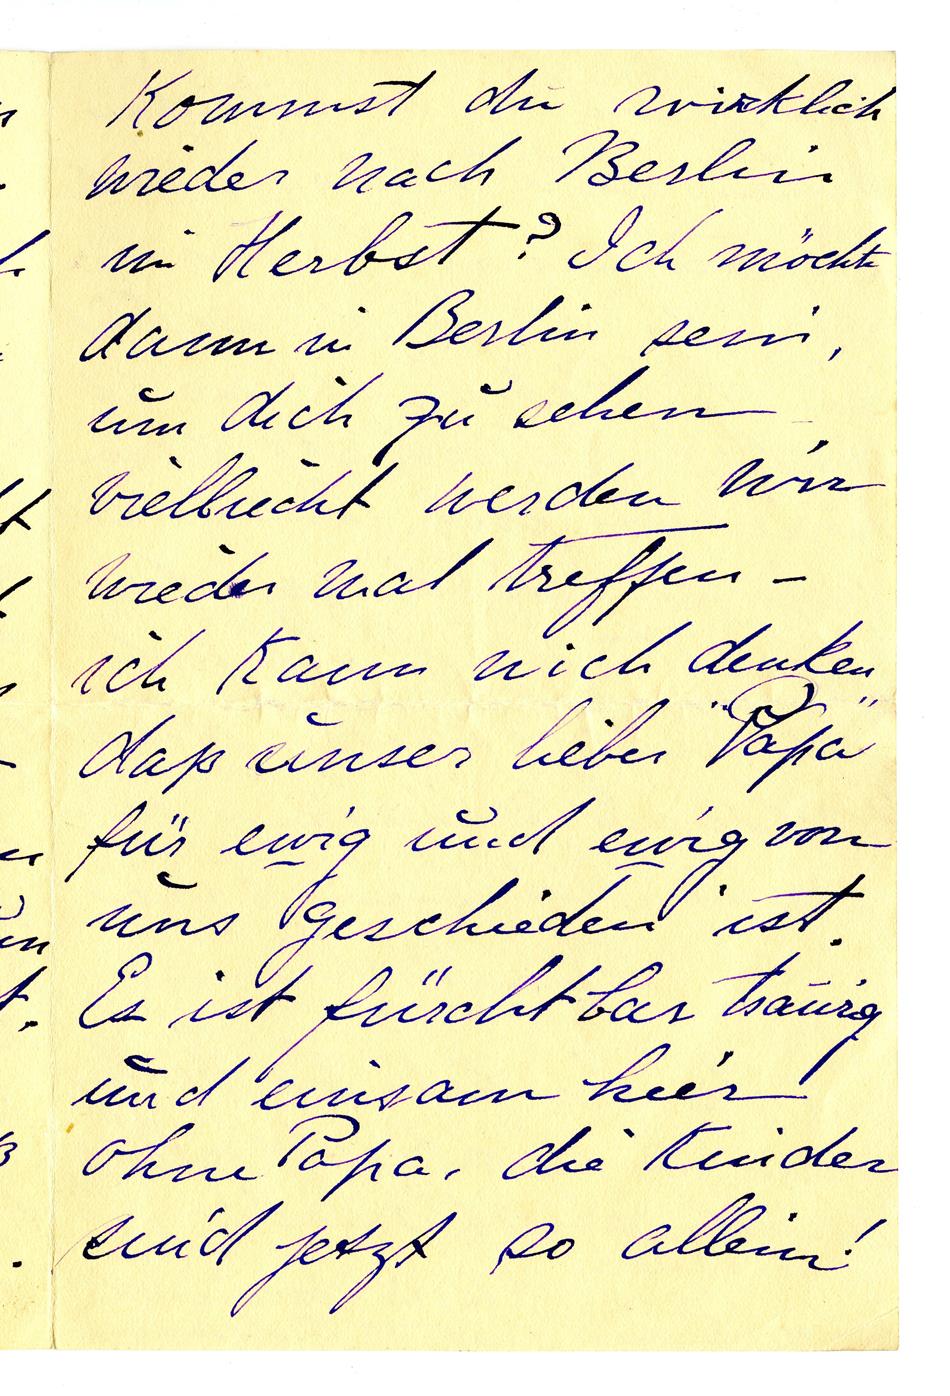 Kommst du wirklich
wieder nach Berlin
im Herbst? Ich möchte
dann in Berlin sein,
um dich zu sehen
vielleicht werden wir
wieder mal treffen –
ich kann nich denken
daß unser lieber "Papa"
für ewig und ewig von
uns geschieden ist.
Es ist fürchtbar traurig
und einsam hier
ohne Papa, die Kinder
sind jetzt so allein!